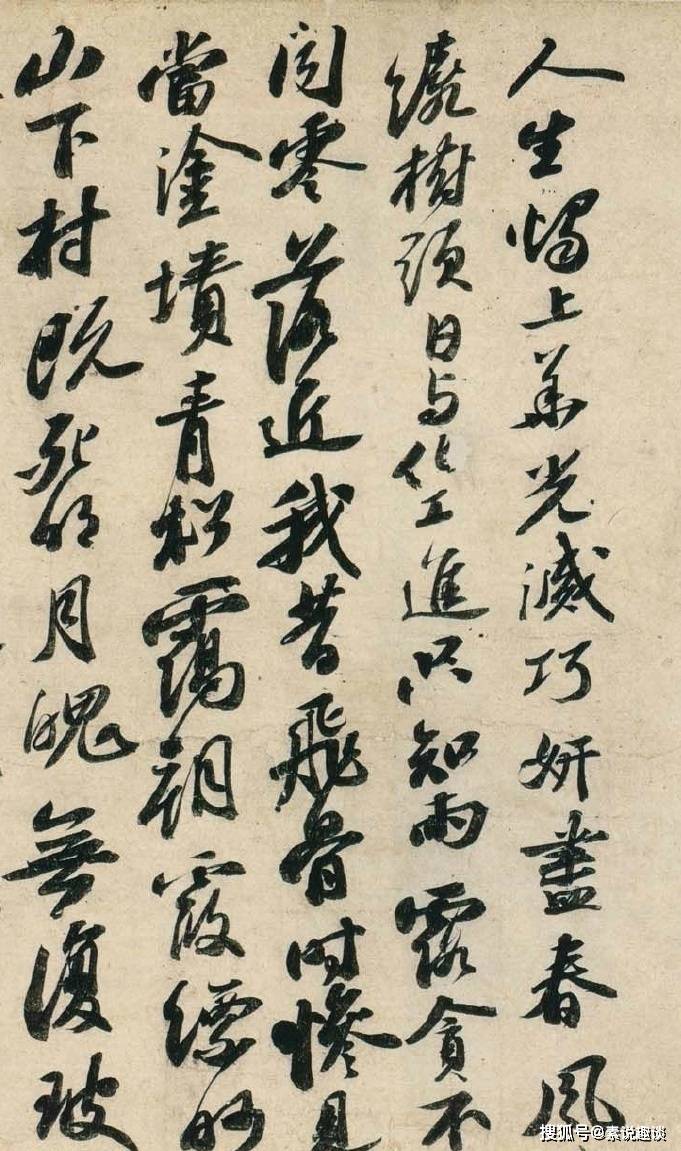 人生燭上華光滅巧妍盡春風
繞樹頭日與化工進只知雨露貪不
聞零落近我昔飛骨時慘見
當塗墳青松靄朝霞縹眇
山下村既死明月魄無復玻
搜狐号@素说趣谈